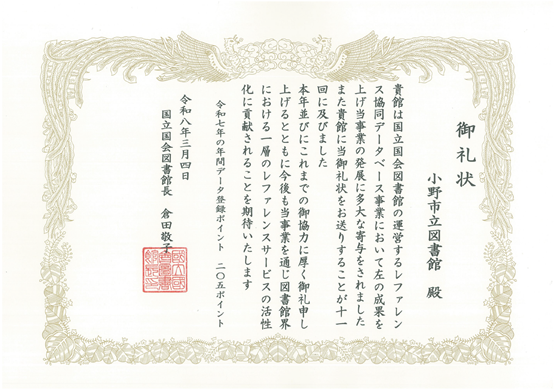 御礼状
小野市立図書館 殿
貴館は国立国会図書館の運営するレファレン
ス協同データベース事業において左の成果を
上げ当事業の発展に多大な寄与をされました
また貴館に当御礼状をお送りすることが十一
回に及びました
本年並びにこれまでの御協力に厚く御礼申し
上げるとともに今後も当事業を通じ図書館界
における一層のレファレンスサービスの活性
化に貢献されることを期待いたします
令和七年の年間データ登録ポイント 二〇五ポイント
令和八年三月四日
国立国会図書館長 倉田敬子